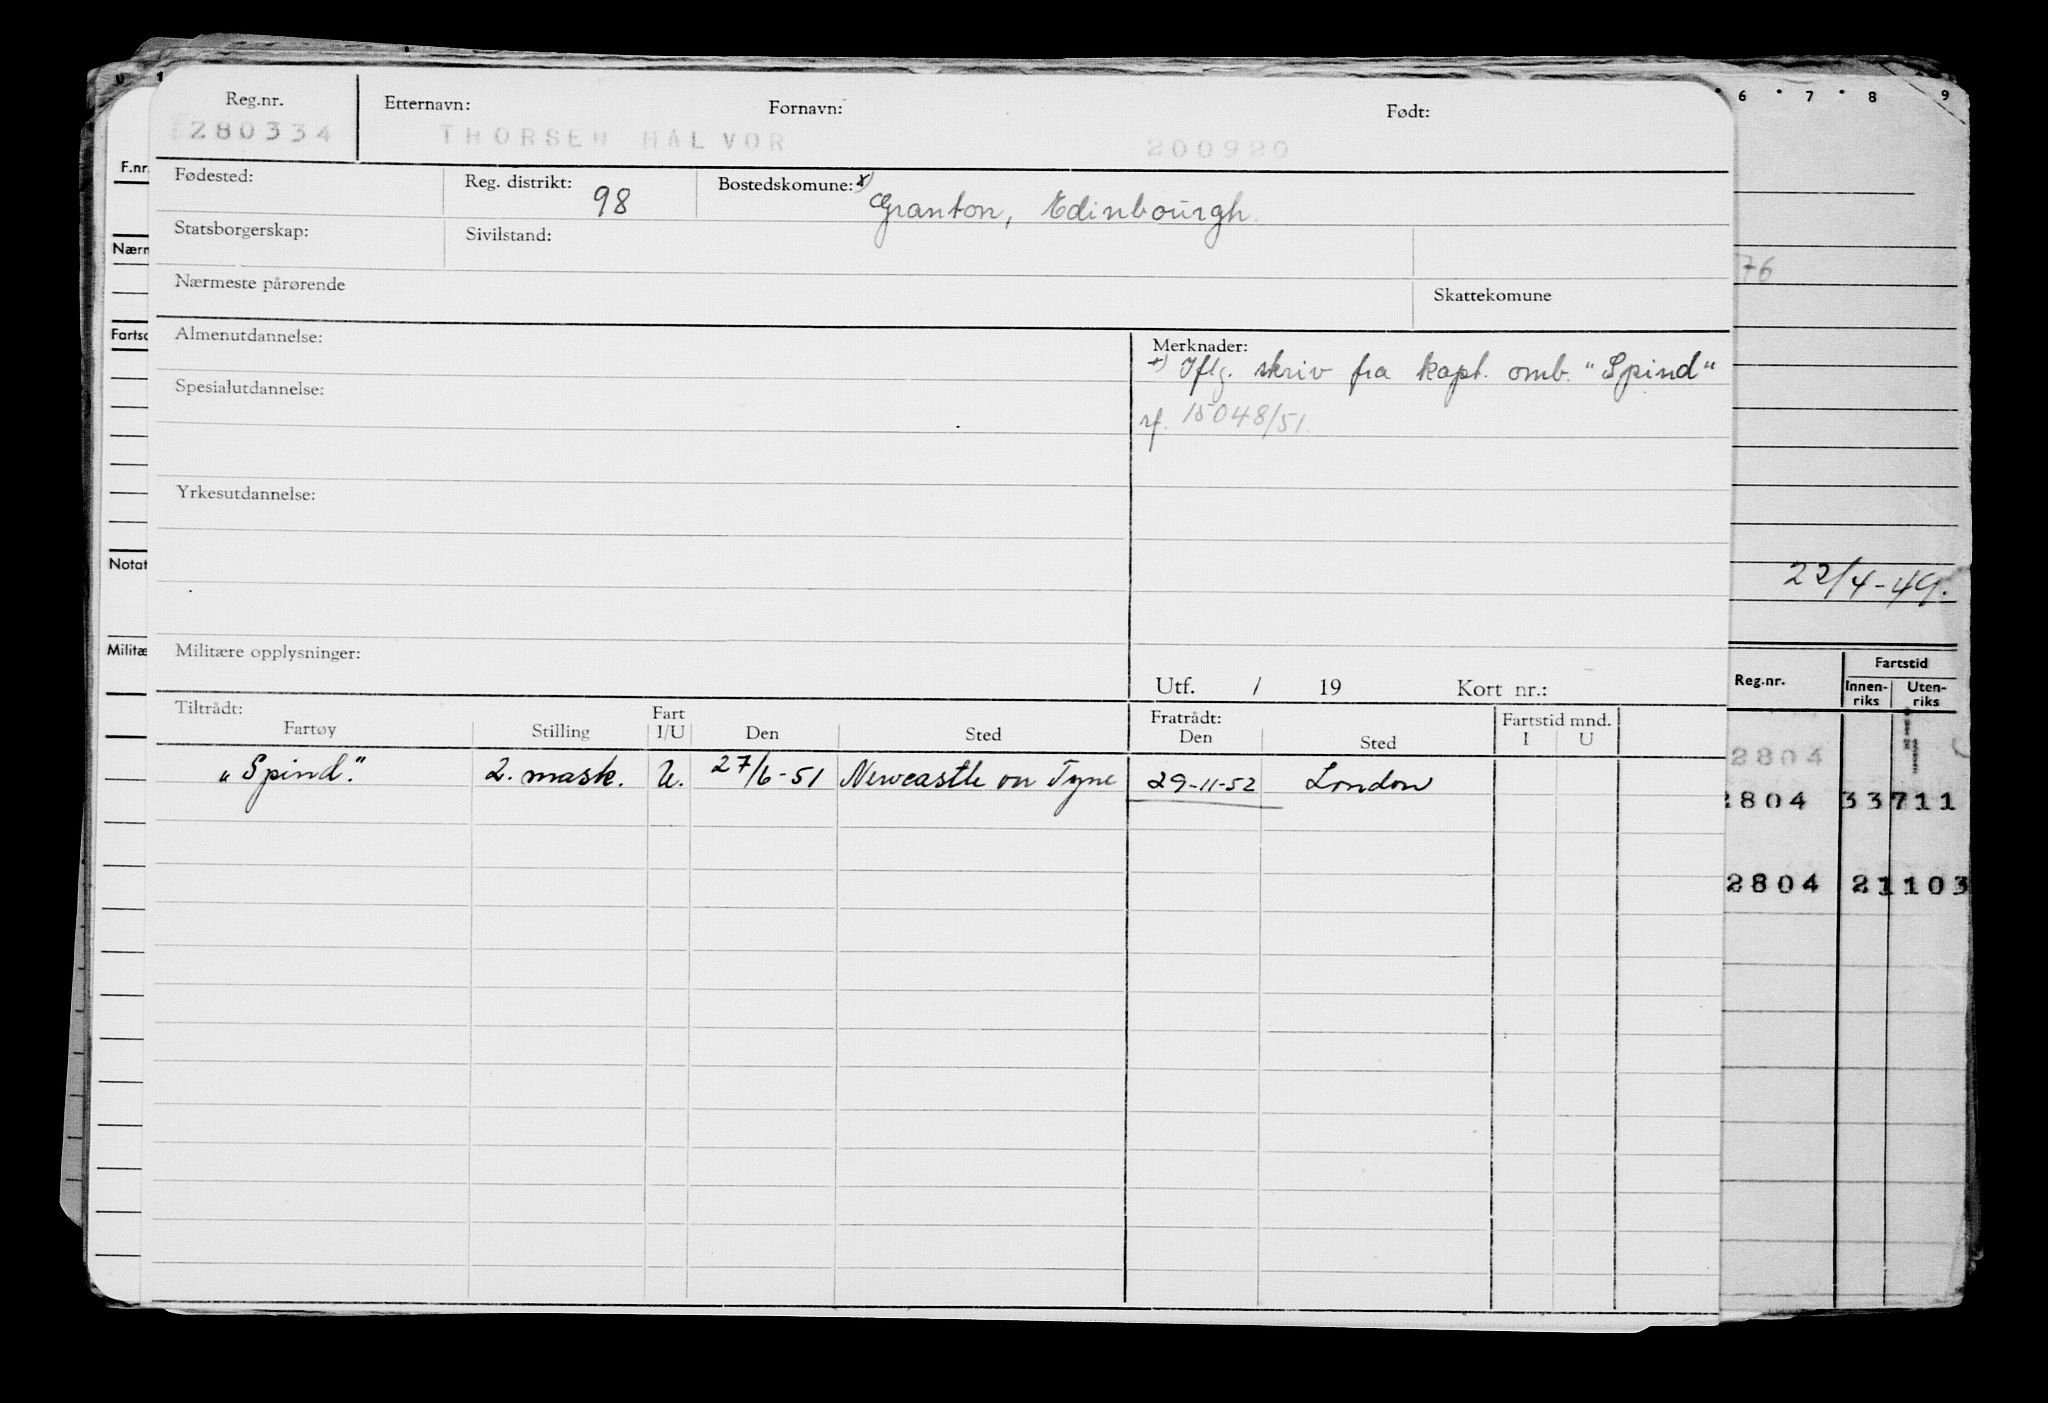 Reg.nr. Etternavn: Fornavn: Født:
280334 THORSEN HALVOR 200920
Fødested: Reg. distrikt: 98 Bostedskomune: x) Granton, Edinbourgh.
Statsborgerskap: Sivilstand:
Nærmeste pårørende Skattekomune
Almenutdannelse: Merknader:
x) Iflg. skriv fra kapt. omb. "Spind"
Spesialutdannelse:
rf. 15048/51.
Yrkesutdannelse:
Militære opplysninger:
Utf. / 19 Kort nr.:
Tiltrådt: Fratrådt:
Fartøy Stilling Fart I/U Den Sted Den Sted Fartstid mnd. I U
"Spind". 2. mask. U. 27/6-51 Newcastle on Tyne 29-11-52 London
6 7 8 9
F.nr.
Nærm
76
Fartsc
Notat
22/4-49.
Militæ
Reg.nr. Fartstid
Innen-riks Uten-riks
2804
2804 33711
2804 21103